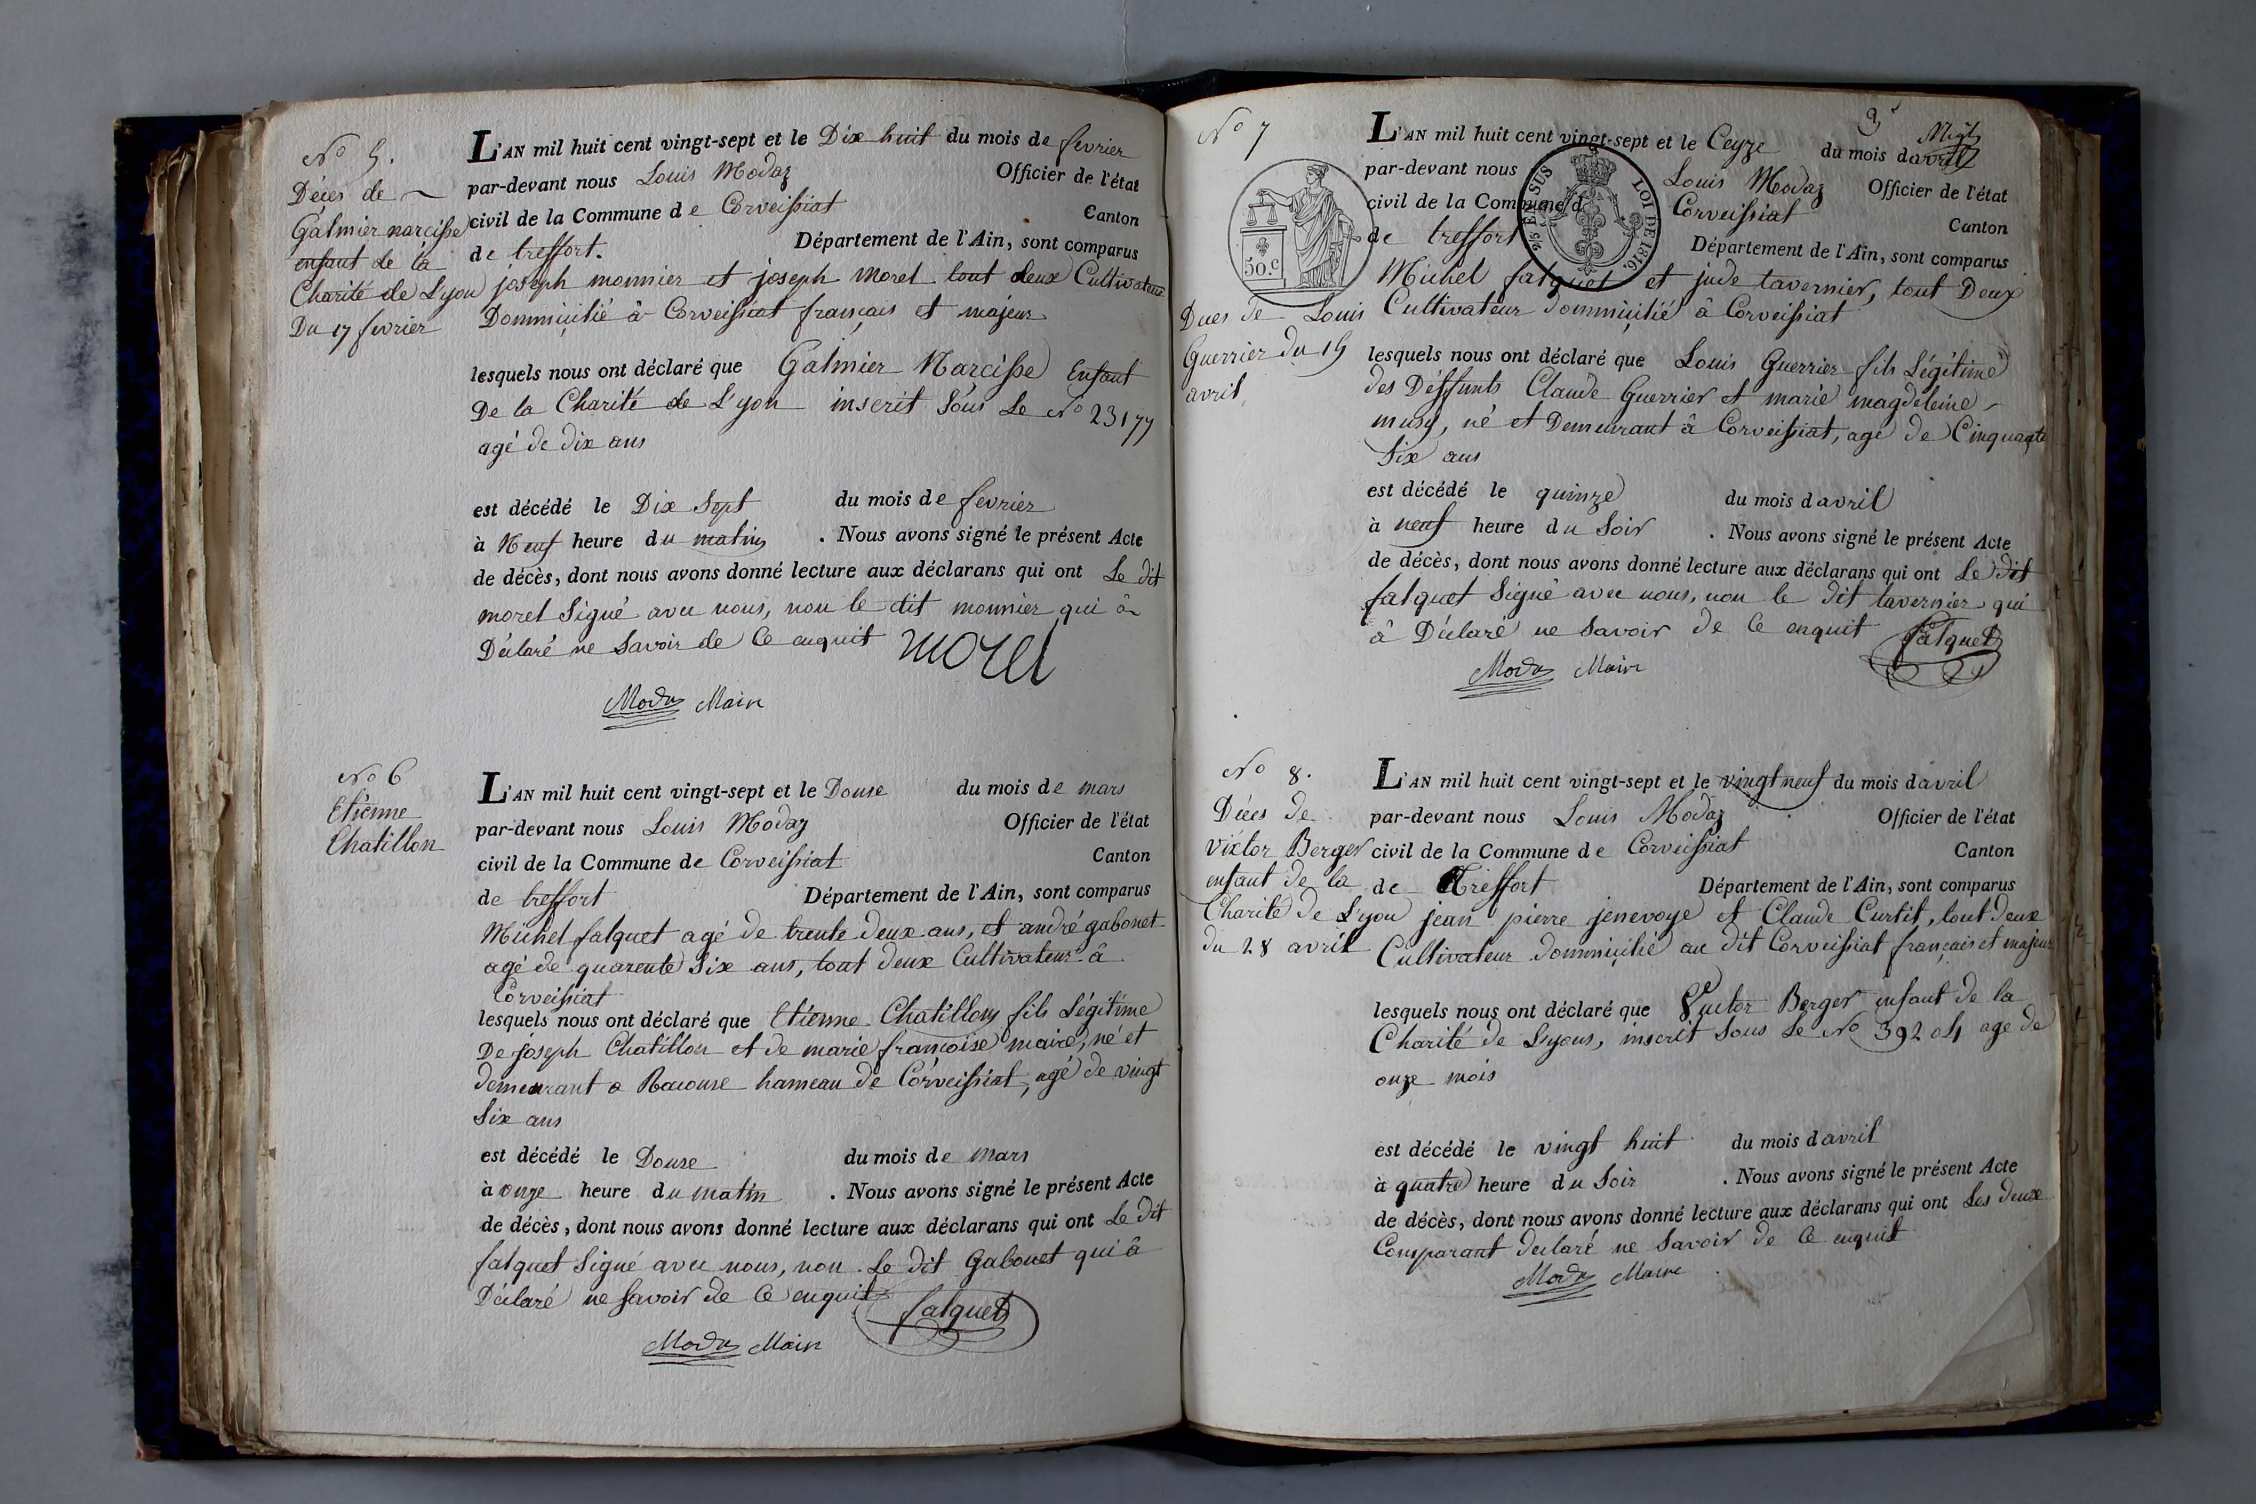 No 5.
Décès de
Galmier narcisse
enfant de la
Charité de Lyon
Du 17 fevrier
L'AN mil huit cent vingt-sept et le Dix huit du mois de fevrier
par-devant nous Louis Modaz Officier de l'état
civil de la Commune de Corveissiat Canton
de treffort. Département de l'Ain, sont comparus
joseph monnier et joseph Morel tout deux Cultivateur
Dommicilié à Corveissiat français et majeur
lesquels nous ont déclaré que Galmier Narcisse Enfant
De la Charité de Lyon inscrit Sous Le No 23177
agé de dix ans
est décédé le Dix Sept du mois de fevrier
à Neuf heure du matin . Nous avons signé le présent Acte
de décès, dont nous avons donné lecture aux déclarans qui ont Le dit
morel Signé avec nous, non le dit monnier qui â
Déclaré ne Savoir de Ce enquit morel
Modaz Maire
No 6
Etienne
Chatillon
L'AN mil huit cent vingt-sept et le Douse du mois de mars
par-devant nous Louis Modaz Officier de l'état
civil de la Commune de Corveissiat Canton
de treffort Département de l'Ain, sont comparus
Michel falquet agé de trente deux ans, et andré gabonet
agé de quarente Six ans, tout deux Cultivateur â
Corveissiat
lesquels nous ont déclaré que Etienne Chatillon fils Légitime
De joseph Chatillon et de marie françoise maire, né et
demeurant a Racouse hameau de Corveissiat, agé de vingt
Six ans
est décédé le Douse du mois de mars
à onze heure du matin . Nous avons signé le présent Acte
de décès, dont nous avons donné lecture aux déclarans qui ont Le dit
falquet Signé avec nous, non Le dit Gabonet qui â
Déclaré ne Savoir de Ce enquit falquet
Modaz Maire
No 7
50.C
Dues de Louis
Guerrier du 15
avril
L'AN mil huit cent vingt-sept et le Ceyze du mois d'avril
par-devant nous Louis Modaz Officier de l'état
civil de la Commune d Corveissiat Canton
de treffort Département de l'Ain, sont comparus
EN SUS LOI DE 1816.
Michel falquet et jude tavernier, tout Deux
Cultivateur dommicilié â Corveissiat
lesquels nous ont déclaré que Louis Guerrier fils Légitime
des Déffunts Claude Guerrier et marie magdeleine
musy, né et Demeurant â Corveissiat, agé de Cinquante
Six ans
est décédé le quinze du mois d'avril
à neuf heure du Soir . Nous avons signé le présent Acte
de décès, dont nous avons donné lecture aux déclarans qui ont Le dit
falquet Signé avec nous, non le dit tavernier qui
â Déclaré ne Savoir de Ce enquit falquet
Modaz Maire
No 8.
Décès de
victor Berger
enfant de la
Charité de Lyon
du 28 avril
L'AN mil huit cent vingt-sept et le vingt neuf du mois d'avril
par-devant nous Louis Modaz Officier de l'état
civil de la Commune de Corveissiat Canton
de treffort Département de l'Ain, sont comparus
jean pierre jenevoye et Claude Curtit, tout deux
Cultivateur dommicilié au dit Corveissiat français et majeur
lesquels nous ont déclaré que Victor Berger enfant de la
Charité de Lyons, inscrit Sous Le No 39204 age de
onze mois
est décédé le vingt huit du mois d'avril
à quatre heure du Soir . Nous avons signé le présent Acte
de décès, dont nous avons donné lecture aux déclarans qui ont Les deux
Comparant declaré ne Savoir de Ce enquit
Modaz Maire